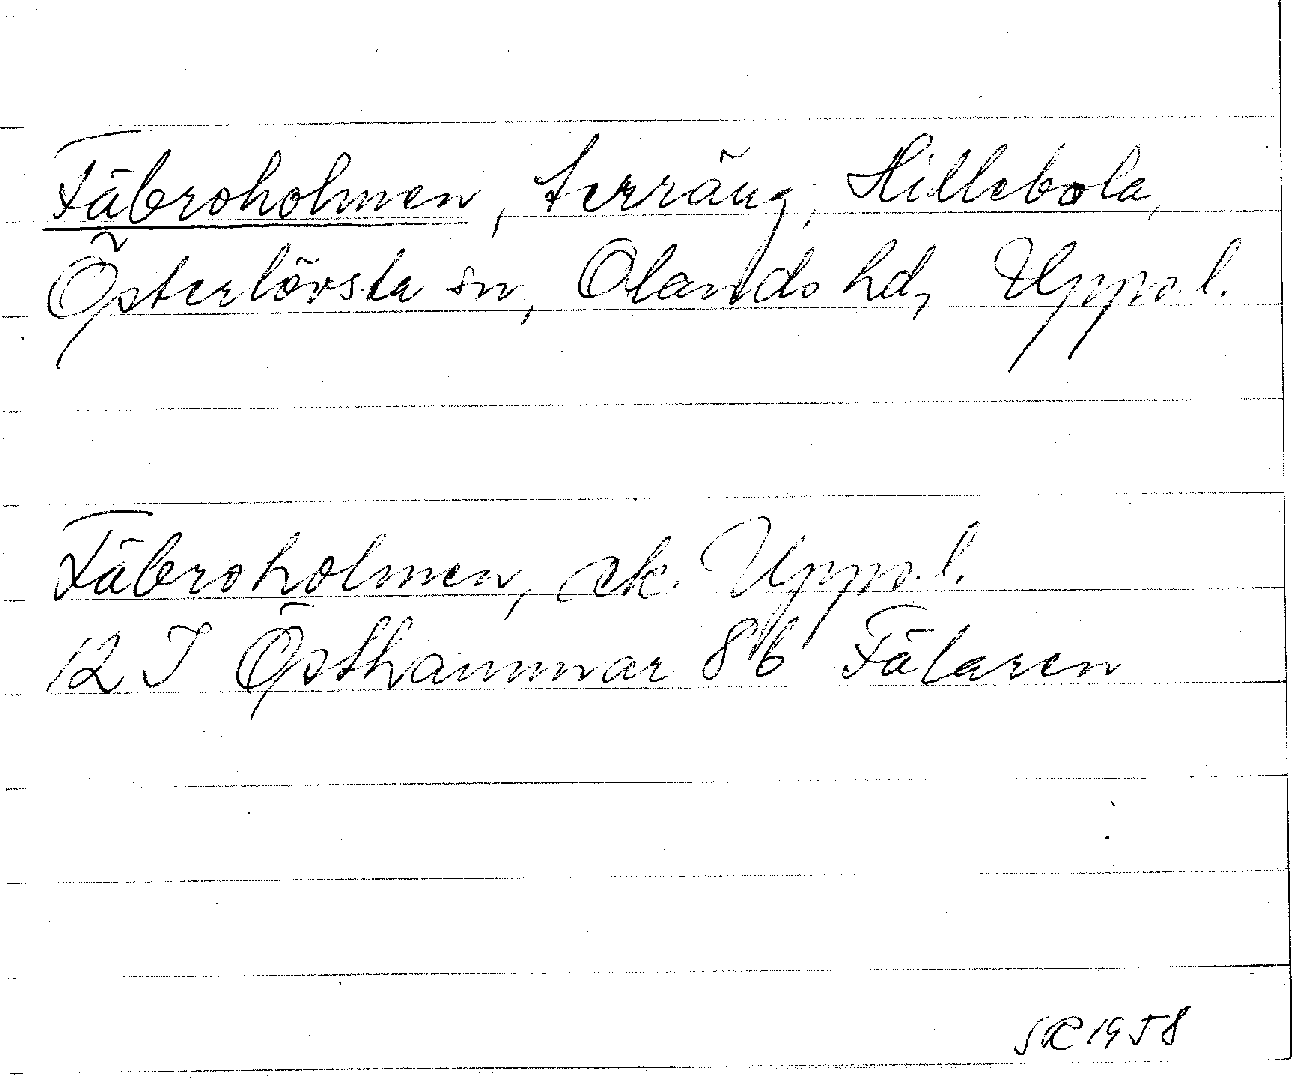 Fäbroholmen, terräng, Hillebola,
Österlövsta sn, Olands hd, Uppl.
Fäbroholmen, ek. Uppl.
12 I Östhammar 8b Fälaren
SR 1958